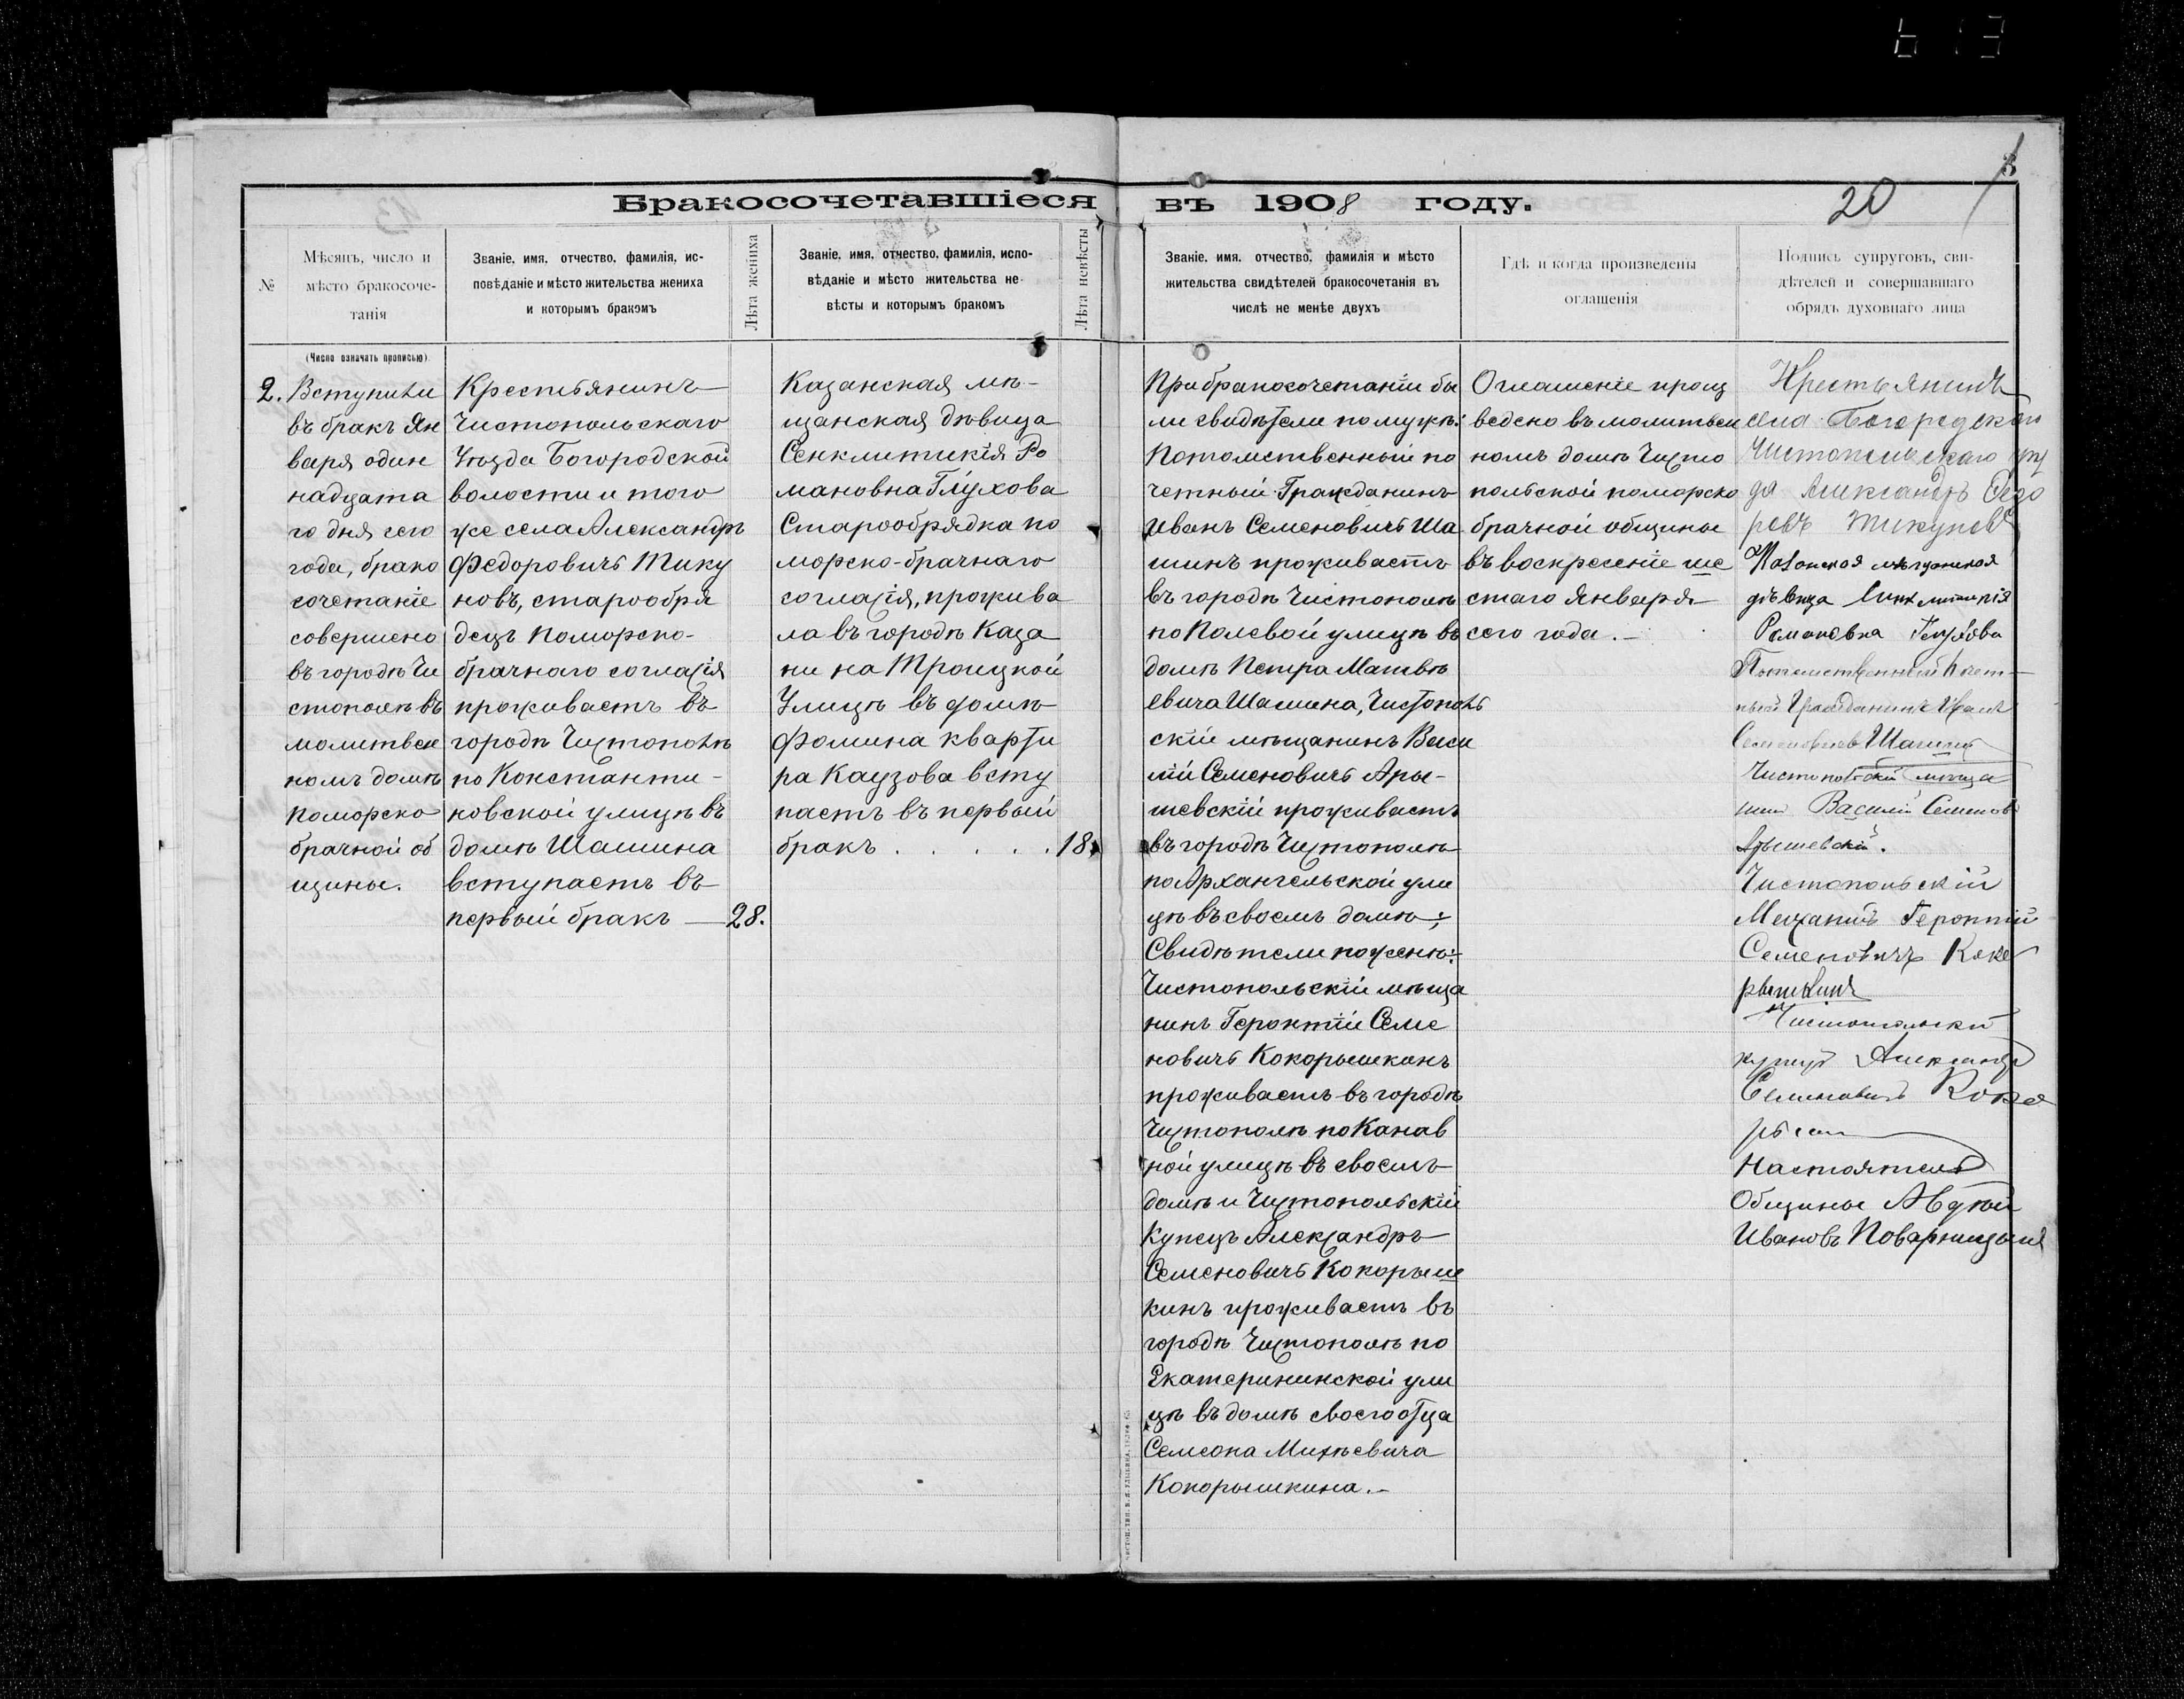 Бракосочетавшіеся въ 1908 году.
20
№
Мѣсяцъ, число и
мѣсто бракосоче-
танія
(Число означать прописью)
Званіе, имя, отчество, фамилія, ис-
повѣданіе и мѣсто жительства жениха
и которымъ бракомъ
Лѣта жениха
Званіе, имя, отчество, фамилія, испо-
вѣданіе и мѣсто жительства не-
вѣсты и которымъ бракомъ
Лѣта невѣсты
Званіе, имя, отчество, фамилія и мѣсто
жительства свидѣтелей бракосочетанія въ
числѣ не менѣе двухъ
Гдѣ и когда произведены
оглашенія
Подпись супруговъ, сви-
дѣтелей и совершавшаго
обрядъ духовнаго лица
2. Вступили
въ бракъ Ян
варя один
надцата
го дня сего
года, брако
сочетаніе
совершено
въ городѣ Чи
стополѣ въ
молитвен
номъ домѣ
поморско
брачной об
щины.
Крестьянинъ
Чистопольскаго
Уѣзда Богородской
волости и того
же села Александръ
Федоровичъ Тику
новъ, старообря
децъ поморско-
брачнаго согласія
проживаетъ въ
городѣ Чистополѣ
по Константи-
новской улицѣ въ
домѣ Шашина
вступаетъ въ
первый бракъ — 28.
Казанская мѣ-
щанская дѣвица
Сенклитикія Ро
мановна Глухова
Старообрядка по
морско-брачнаго
согласія, прожива
ла въ городѣ Каза
ни на Троицкой
Улицѣ въ домѣ
Фомина кварти
ра Каузова всту
паетъ въ первый
бракъ . . . . . 18.
При бракосочетаніи бы
ли свидѣтели по мужѣ:
Потомственный по
четный Гражданинъ
Иванъ Семеновичъ Ша
шинъ проживаетъ
въ городѣ Чистополѣ
по Полевой улицѣ въ
домѣ Петра Матвѣ
евича Шашина, Чистополь
скій мѣщанинъ Васи
лій Семеновичъ Ары-
шевскій проживаетъ
въ городѣ Чистополѣ
по Архангельской ули
цѣ въ своемъ домѣ;
Свидѣтели по женѣ:
Чистопольскій мѣща
нинъ Геронтій Семе
новичъ Кокорышкинъ
проживаетъ въ городѣ
Чистополѣ по Канав
ной улицѣ въ своемъ
домѣ и Чистопольскій
Купецъ Александръ
Семеновичъ Кокорыш
кинъ проживаетъ въ
городѣ Чистополѣ по
Екатерининской ули
цѣ въ домѣ своего отца
Семеона Михѣевича
Кокорышкина.
Оглашеніе произ
ведено въ молитвен
номъ домѣ Чисто
польской поморско
брачной общины
въ воскресеніе ше
стаго Января
сего года.
Крестьянинъ
села Богородскаго
Чистопольскаго уѣз
да Александръ Федо
ровъ Тикуновъ
Казанская мѣщанская
дѣвица
Романовна Глухова
Потомственный почет-
ный Гражданинъ Иванъ
Семеновичъ Шашинъ
Чистопольскій мѣща
нин Василій Семенов
Арышевскій.
Чистопольскій
Мещанинъ Геронтій
Семеновичъ Коко
рышкинъ
Чистопольскій
купецъ Александръ
Семеновичъ Коко
Настоятель
Общины Авдѣй
Ивановъ Поварницынъ